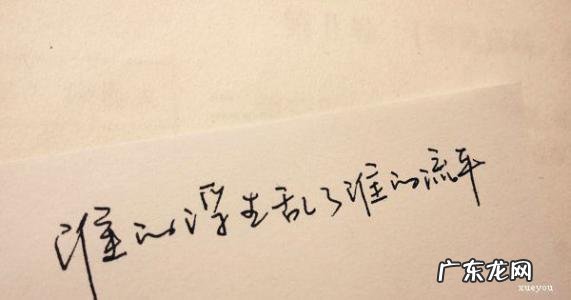 谁的浮生乱了谁的流年
广东龙网
xueyou